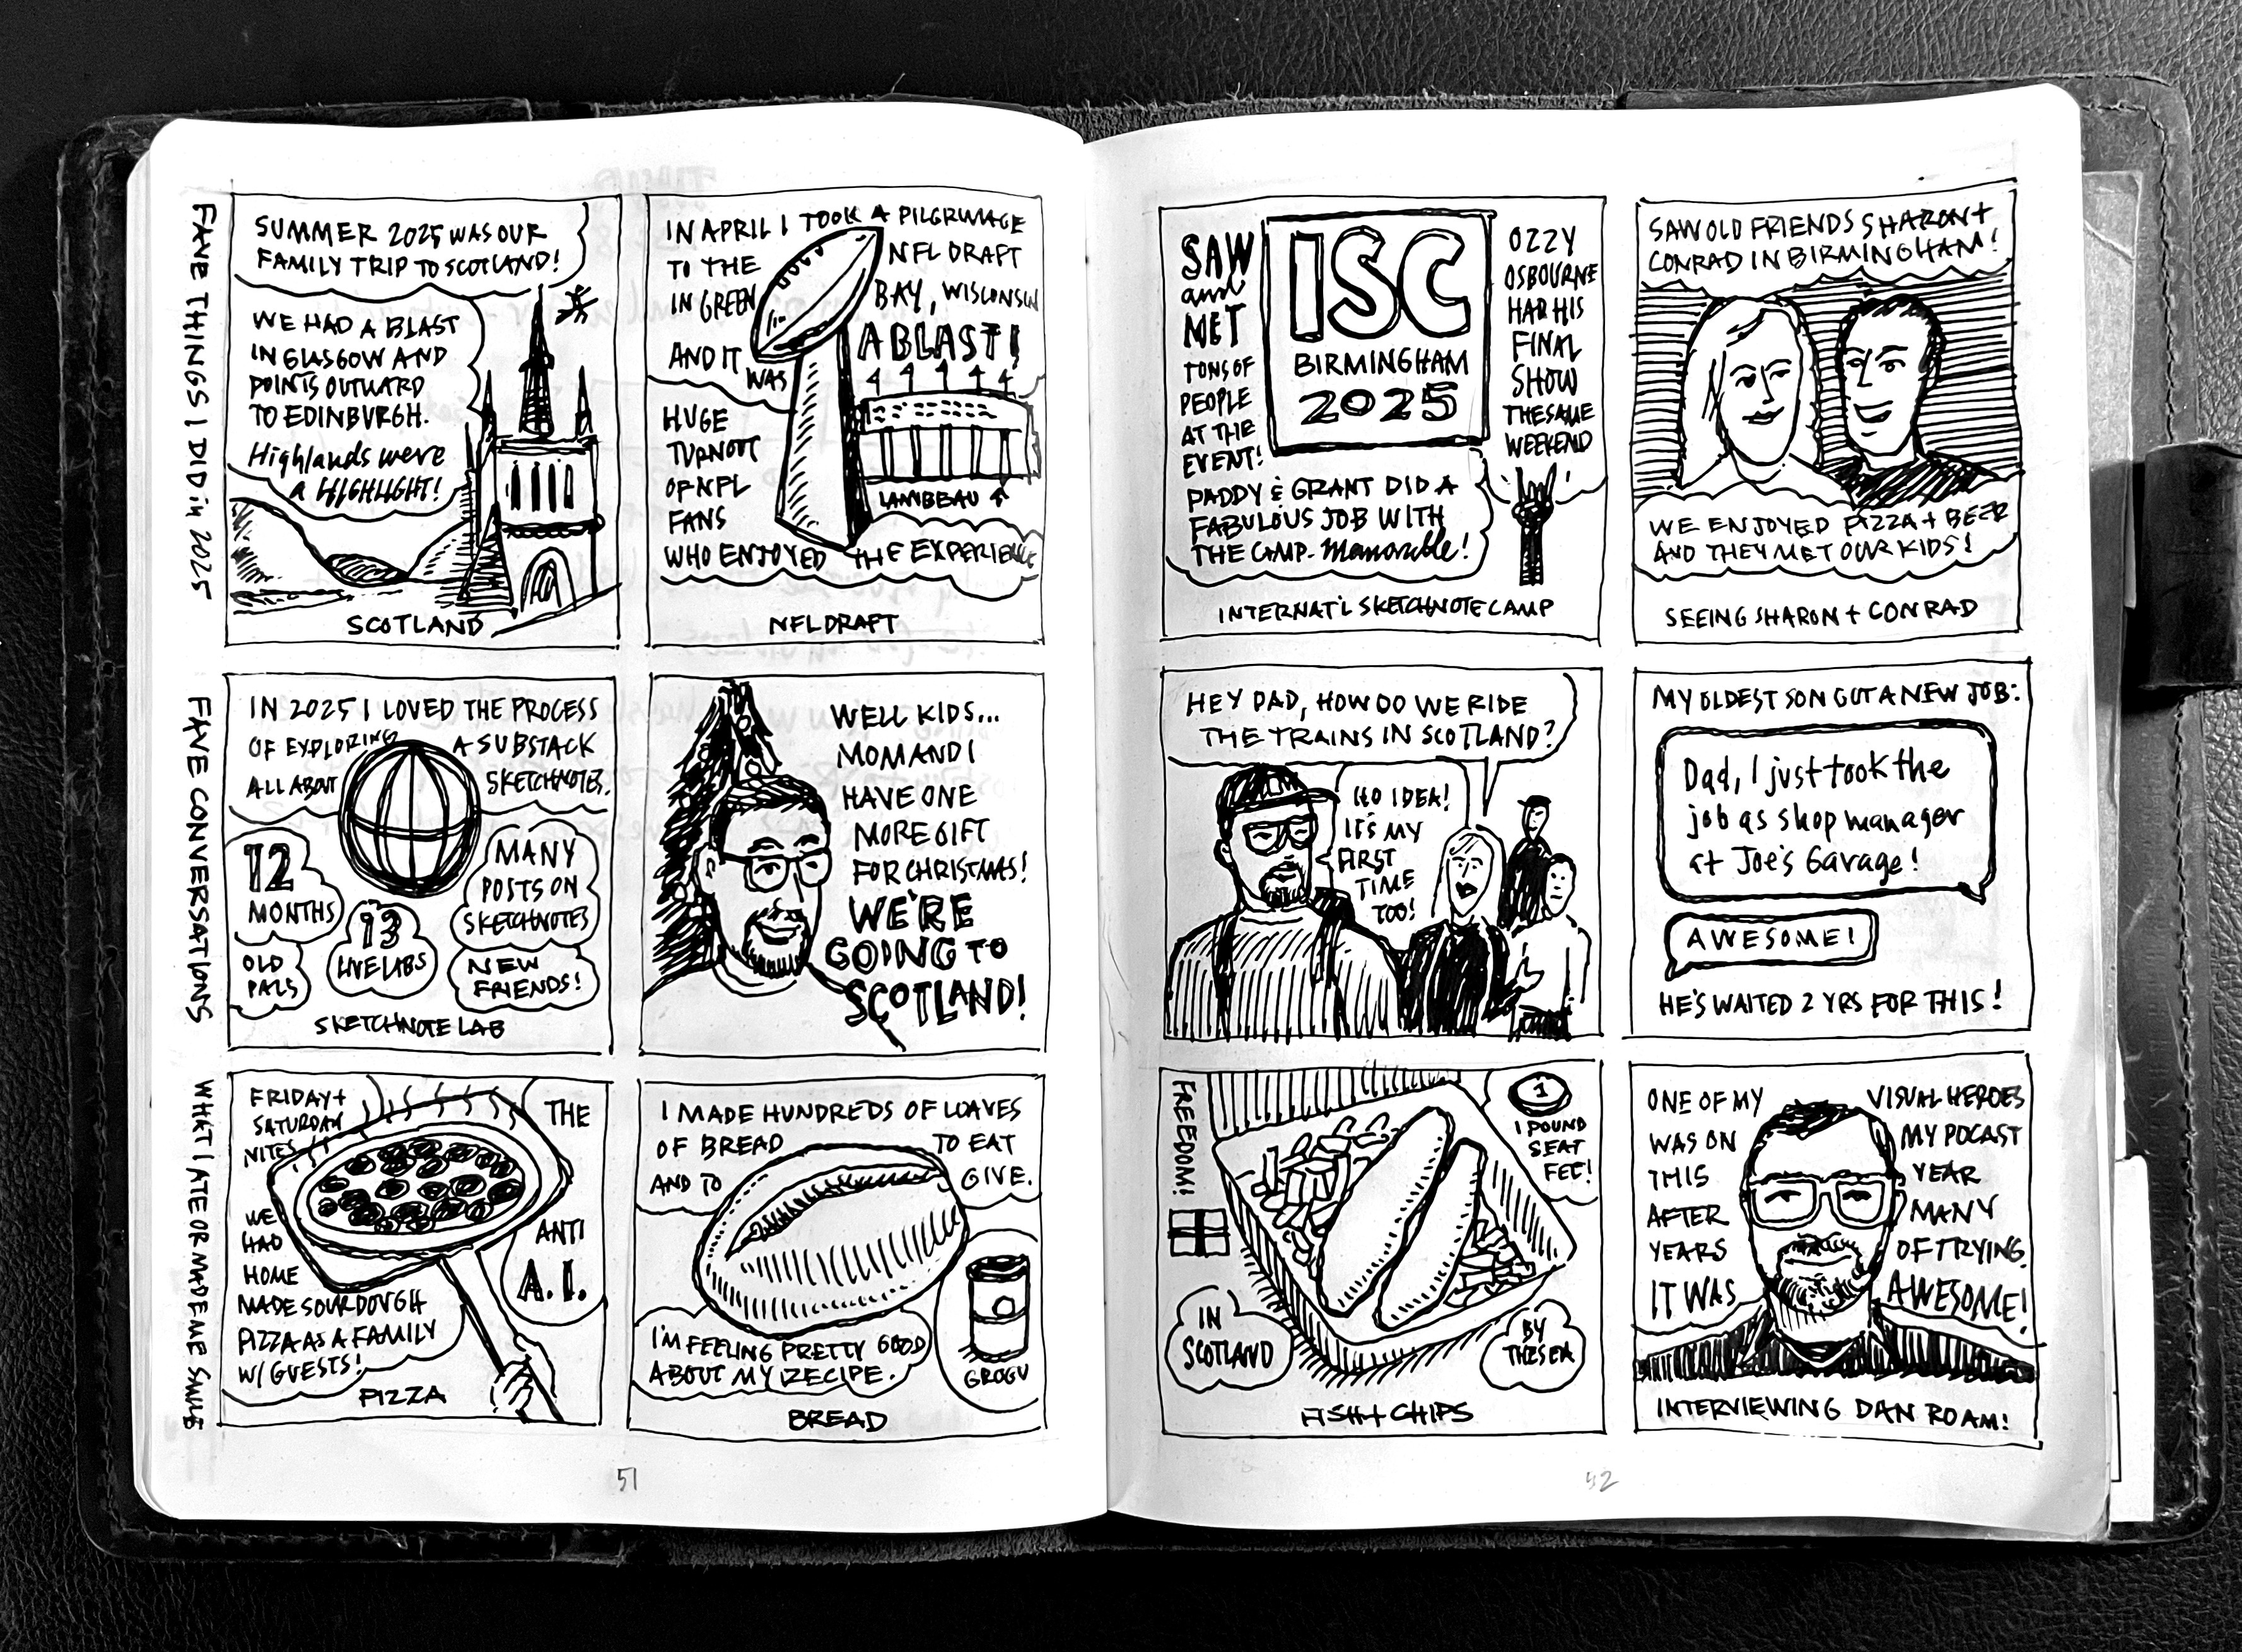 FAVE THINGS I DID in 2025
SUMMER 2025 WAS OUR
FAMILY TRIP TO SCOTLAND!
WE HAD A BLAST
IN GLASGOW AND
POINTS OUTWARD
TO EDINBURGH.
Highlands were
a HIGHLIGHT!
SCOTLAND
IN APRIL I TOOK A PILGRIMAGE
TO THE NFL DRAFT
IN GREEN BAY, WISCONSIN
AND IT WAS A BLAST!
HUGE
TURNOUT
OF NFL
FANS
WHO ENJOYED THE EXPERIENCE
LAMBEAU
NFL DRAFT
SAW
and
MET
TONS OF
PEOPLE
AT THE
EVENT!
ISC
BIRMINGHAM
2025
OZZY
OSBOURNE
HAD HIS
FINAL
SHOW
THE SAME
WEEKEND
PADDY & GRANT DID A
FABULOUS JOB WITH
THE CAMP. Memorable!
INTERNAT'L SKETCHNOTE CAMP
SAW OLD FRIENDS SHARON +
CONRAD IN BIRMINGHAM!
WE ENJOYED PIZZA + BEER
AND THEY MET OUR KIDS!
SEEING SHARON + CONRAD
FAVE CONVERSATIONS
IN 2025 I LOVED THE PROCESS
OF EXPLORING A SUBSTACK
ALL ABOUT SKETCHNOTES.
12
MONTHS
OLD
PALS
13
LIVE LABS
MANY
POSTS ON
SKETCHNOTES
NEW
FRIENDS!
SKETCHNOTE LAB
WELL KIDS...
MOM AND I
HAVE ONE
MORE GIFT
FOR CHRISTMAS!
WE'RE
GOING TO
SCOTLAND!
HEY DAD, HOW DO WE RIDE
THE TRAINS IN SCOTLAND?
NO IDEA!
IT'S MY
FIRST
TIME
TOO!
MY OLDEST SON GOT A NEW JOB:
Dad, I just took the
job as shop manager
at Joe's Garage!
AWESOME!
HE'S WAITED 2 YRS FOR THIS!
WHAT I ATE OR MADE ME SMILE
FRIDAY +
SATURDAY
NITES
WE
HAD
HOME
MADE SOURDOUGH
PIZZA AS A FAMILY
W/ GUESTS!
THE
ANTI
A.I.
PIZZA
I MADE HUNDREDS OF LOAVES
OF BREAD TO EAT
AND TO GIVE.
I'M FEELING PRETTY GOOD
ABOUT MY RECIPE.
GROGU
BREAD
FREEDOM!
1
1 POUND
SEAT
FEE!
IN
SCOTLAND
BY
THE SEA
FISH + CHIPS
ONE OF MY VISUAL HEROES
WAS ON MY POCAST
THIS YEAR
AFTER MANY
YEARS OF TRYING.
IT WAS AWESOME!
INTERVIEWING DAN ROAM!
51
52